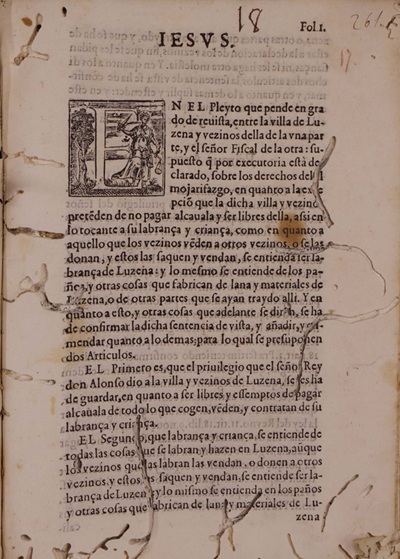 18
Fol.1.
261.
17
IESVS.
EN EL Pleyto que pende en gra
do de reuista, entre la villa de Lu
zena y vezinos della de la vna par
te, y el señor Fiscal de la otra: su
puesto q̃ por executoria està de
clarado, sobre los derechos del
mojarifazgo, en quanto a la ex
pciõ que la dicha villa y vezino
pretẽden de no pagar alcauala y ser libres della, assi en
lo tocante a su labrança y criança, como en quanto a
aquello que los vezinos vẽden a otros vezinos, o se las
donan, y estos las saquen y vendan, se entienda ser la-
brança de Luzena: y lo mesmo se entiende de los pa-
ños, y otras cosas que fabrican de lana y materiales de
Luzena, o de otras partes que se ayan traydo alli. Y en
quanto a esto, y otras cosas que adelante se dirã, se ha
de confirmar la dicha sentencia de vista, y añadir, y en-
mendar quanto a lo demas; para lo qual se presuponen
dos Articulos.
EL Primero es, que el priuilegio que el señor Rey
don Alonso dio a la villa y vezinos de Luzena, se les ha
de guardar, en quanto a ser libres y essemptos de pagar
alcauala de todo lo que cogen, vẽden, y contratan de su
labrança y criança.
EL Segundo, que labrança y criança, se entiende de
todas las cosas que se labran y hazen en Luzena, aũque
los vezinos que las labran las vendan, o donen a otros
vezinos, y estos las saquen y vendan, se entiende ser la-
brança de Luzena y lo mismo se entiende en los paños
y otras cosas que fabrican de lana y materiales de Lu-
zena